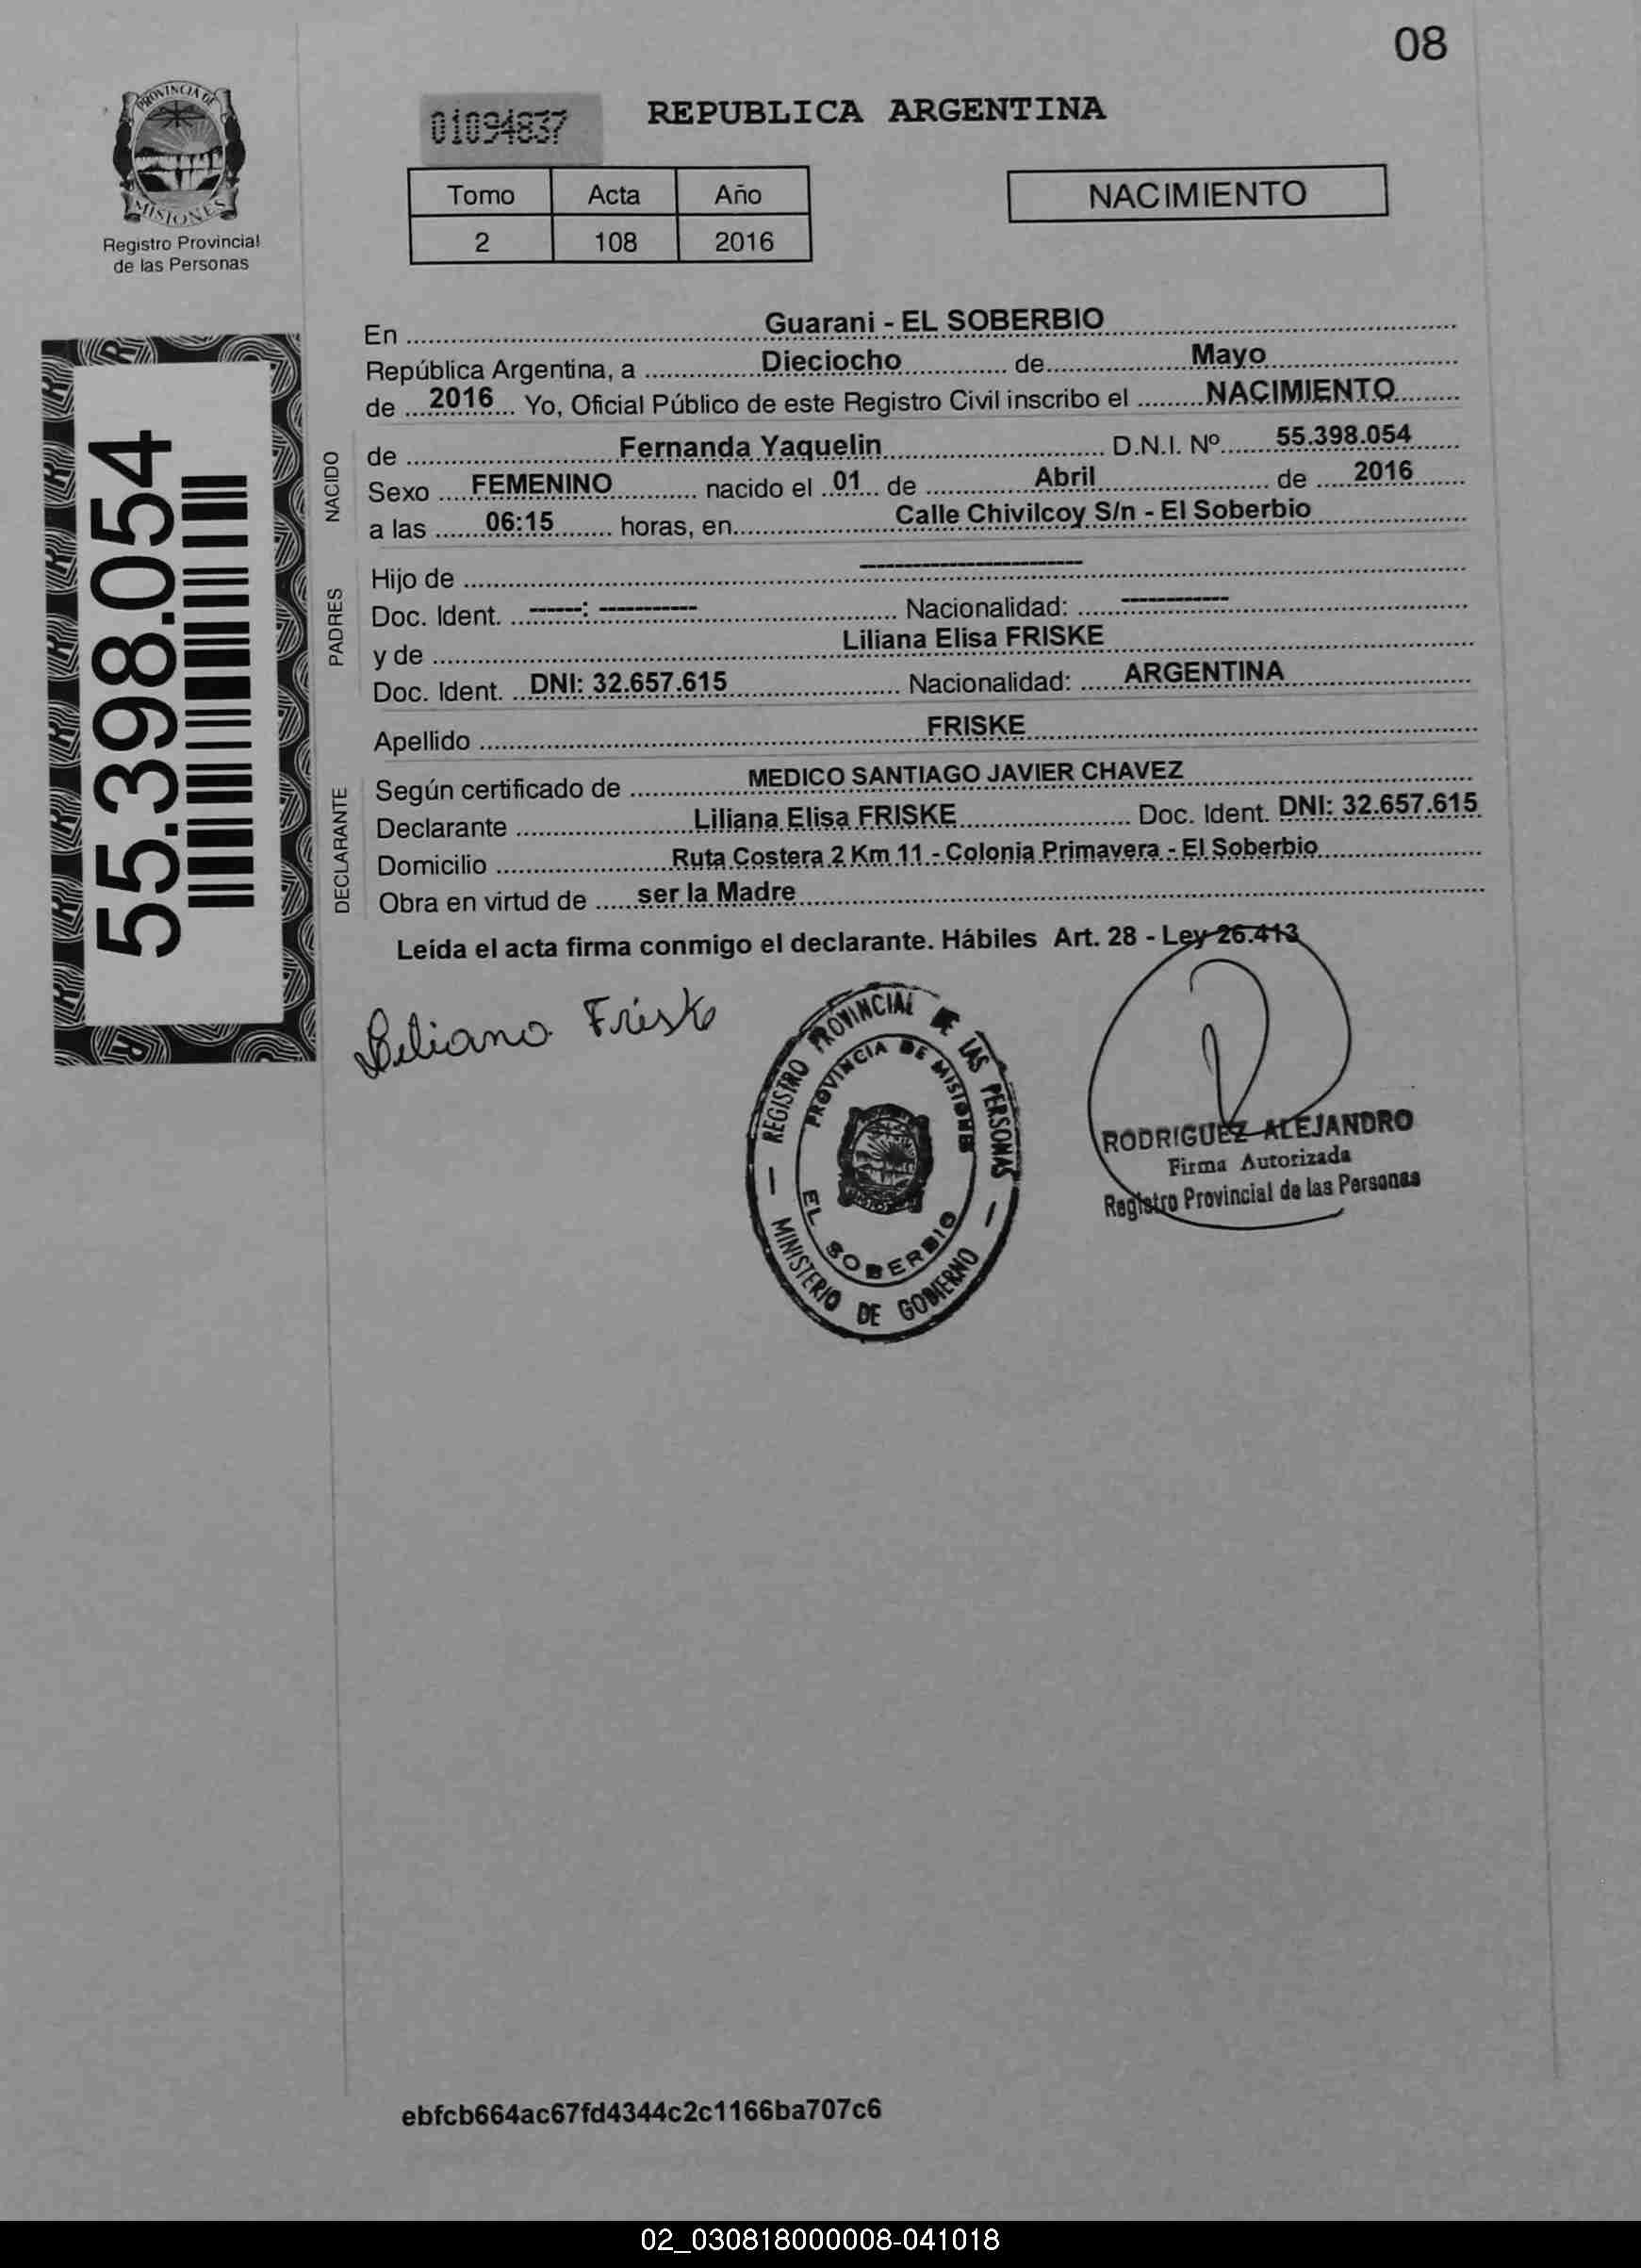 08
PROVINCIA DE
MISIONES
Registro Provincial
de las Personas
01094837
REPUBLICA ARGENTINA
Tomo Acta Año
2 108 2016
NACIMIENTO
55.398.054
En Guarani - EL SOBERBIO
República Argentina, a Dieciocho de Mayo
de 2016 Yo, Oficial Público de este Registro Civil inscribo el NACIMIENTO
NACIDO
de Fernanda Yaquelin D.N.I. Nº 55.398.054
Sexo FEMENINO nacido el 01 de Abril de 2016
a las 06:15 horas, en Calle Chivilcoy S/n - El Soberbio
PADRES
Hijo de ------------------------
Doc. Ident. ------: ----------- Nacionalidad: ------------
y de Liliana Elisa FRISKE
Doc. Ident. DNI: 32.657.615 Nacionalidad: ARGENTINA
Apellido FRISKE
DECLARANTE
Según certificado de MEDICO SANTIAGO JAVIER CHAVEZ
Declarante Liliana Elisa FRISKE Doc. Ident. DNI: 32.657.615
Domicilio Ruta Costera 2 Km 11 - Colonia Primavera - El Soberbio
Obra en virtud de ser la Madre
Leída el acta firma conmigo el declarante. Hábiles Art. 28 - Ley 26.413
Liliana Friske
REGISTRO PROVINCIAL DE LAS PERSONAS
PROVINCIA DE MISIONES
EL SOBERBIO
MINISTERIO DE GOBIERNO
RODRIGUEZ ALEJANDRO
Firma Autorizada
Registro Provincial de las Personas
ebfcb664ac67fd4344c2c1166ba707c6
02_030818000008-041018